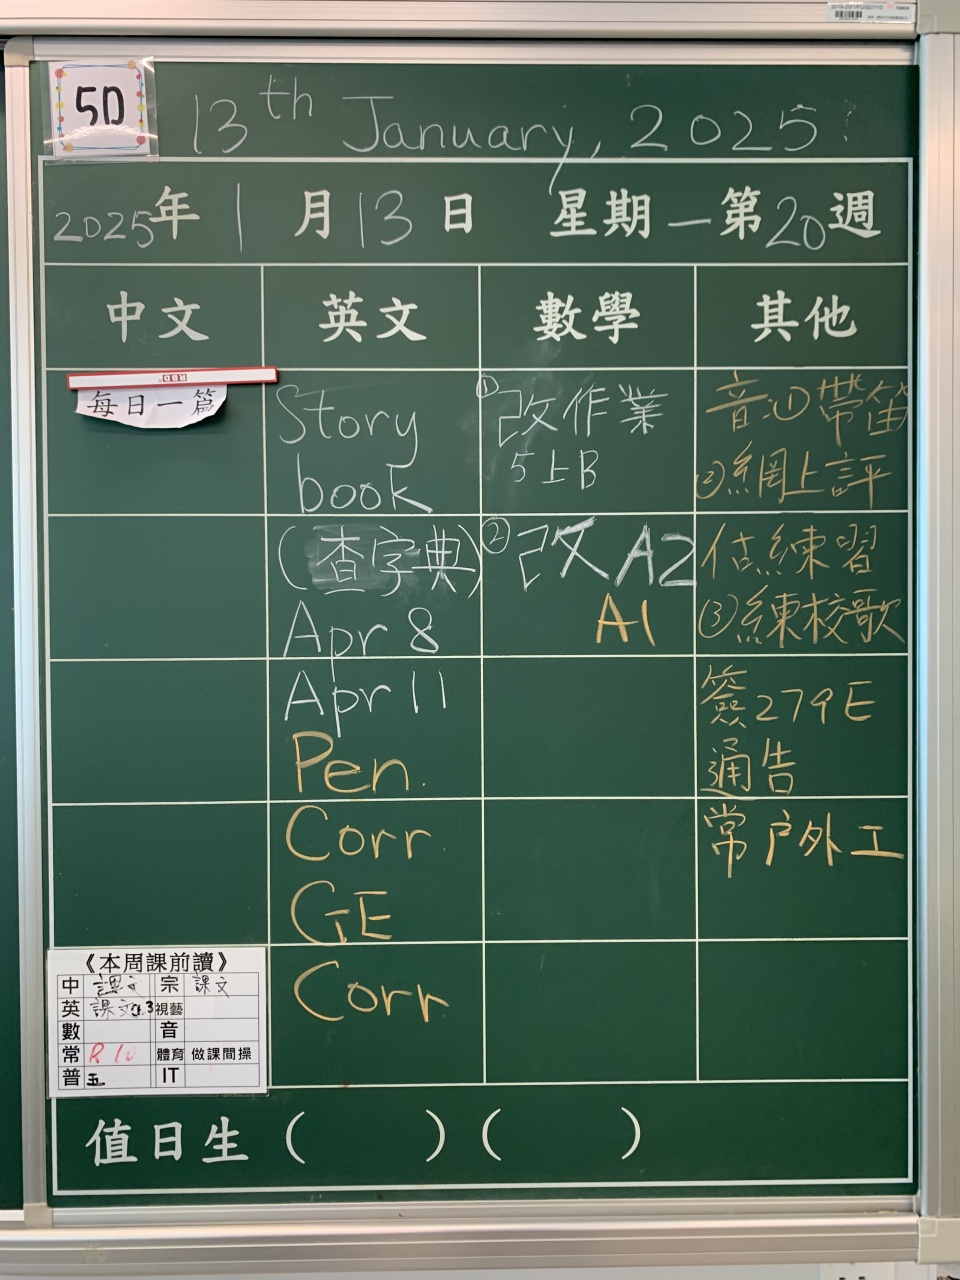 5D
13th January, 2025
2025年1月13日 星期一第20週
中文 英文 數學 其他
每日一篇
Story
book
(查字典)
Apr 8
Apr 11
Pen.
Corr
GE
Corr
①改作業
5上B
②改A2
A1
音:①帶笛
②網上評
估練習
③練校歌
簽279E
通告
常户外工
《本周課前讀》
中 課文 宗 課文
英 課文 視藝
數 音
常 R 10 體育 做課間操
普 五 IT
值日生( )( )